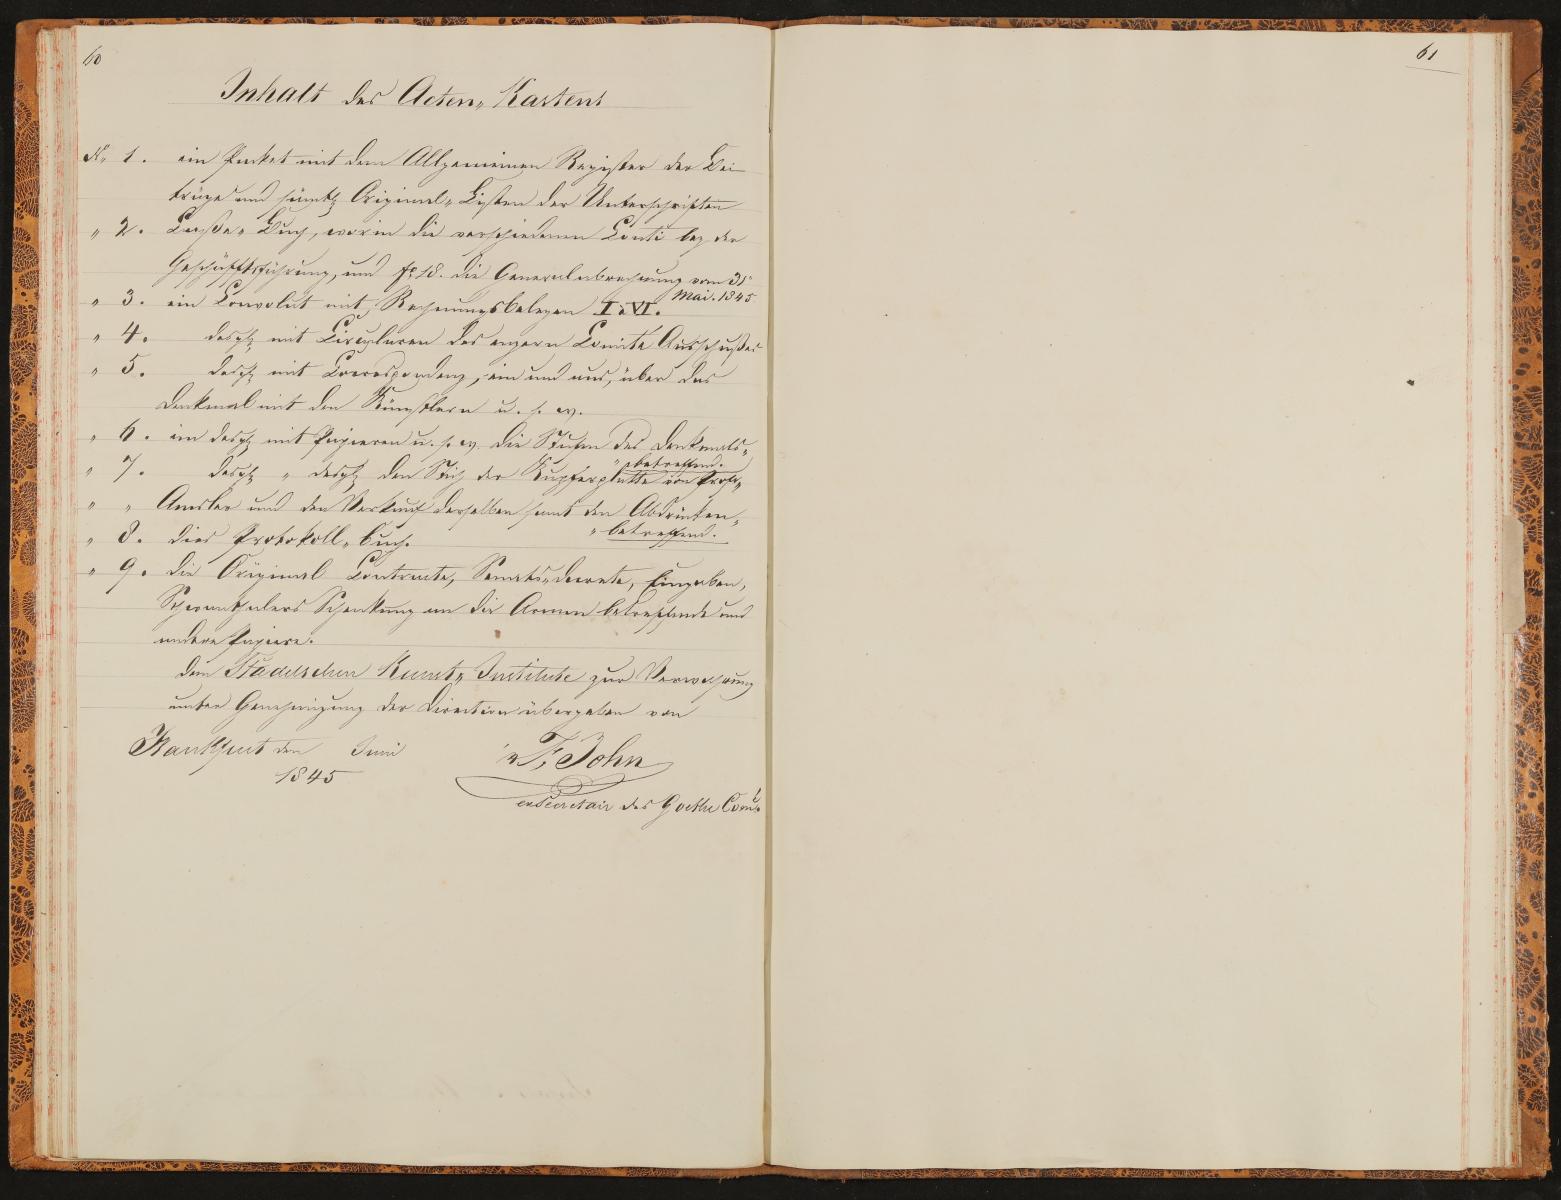 60
61
Inhalt des Acten„Kastens
No 1. ein Packet mit dem Allgemeinen Register der Bei-
träge und sämtl. Original„Listen der Unterschriften
„ 2. Cassa„Buch, worin die verschiedenen Conti bez der
Geschäftsführung, und fo 18. die Generalabrechnung vom 31
Mai. 1845
„ 3. ein Convolut mit Rechnungsbelegen I à VI.
„ 4. desgl. mit Circularen des engern Comité Ausschußes
„ 5. desgl. mit Correspondenz, ein und aus, über das
Denkmal mit den Künstlern u. s. w.
„ 6. ein desgl. mit Papieren u. s. w. die Stufen des Denkmals„
„betreffend.
„ 7. desgl. „ desgl. den Stich der Kupferplatte von Prof.
„ „ Amsler und den Verkauf derselben samt den Abdrücken„
„betreffend.
„ 8. dies Protokoll„buch.
„ 9. die Original Contracte, Senats„decrete, Eingaben,
Schwanthalers Schenkung an die Armen betreffende und
andere Papiere.
dem Städelschen Kunst„Institute zur Verwahrung
unter Genehmigung der Direction übergeben von
Frankfurt den Juni
1845
F. John
exSecretair des Goethe Comite